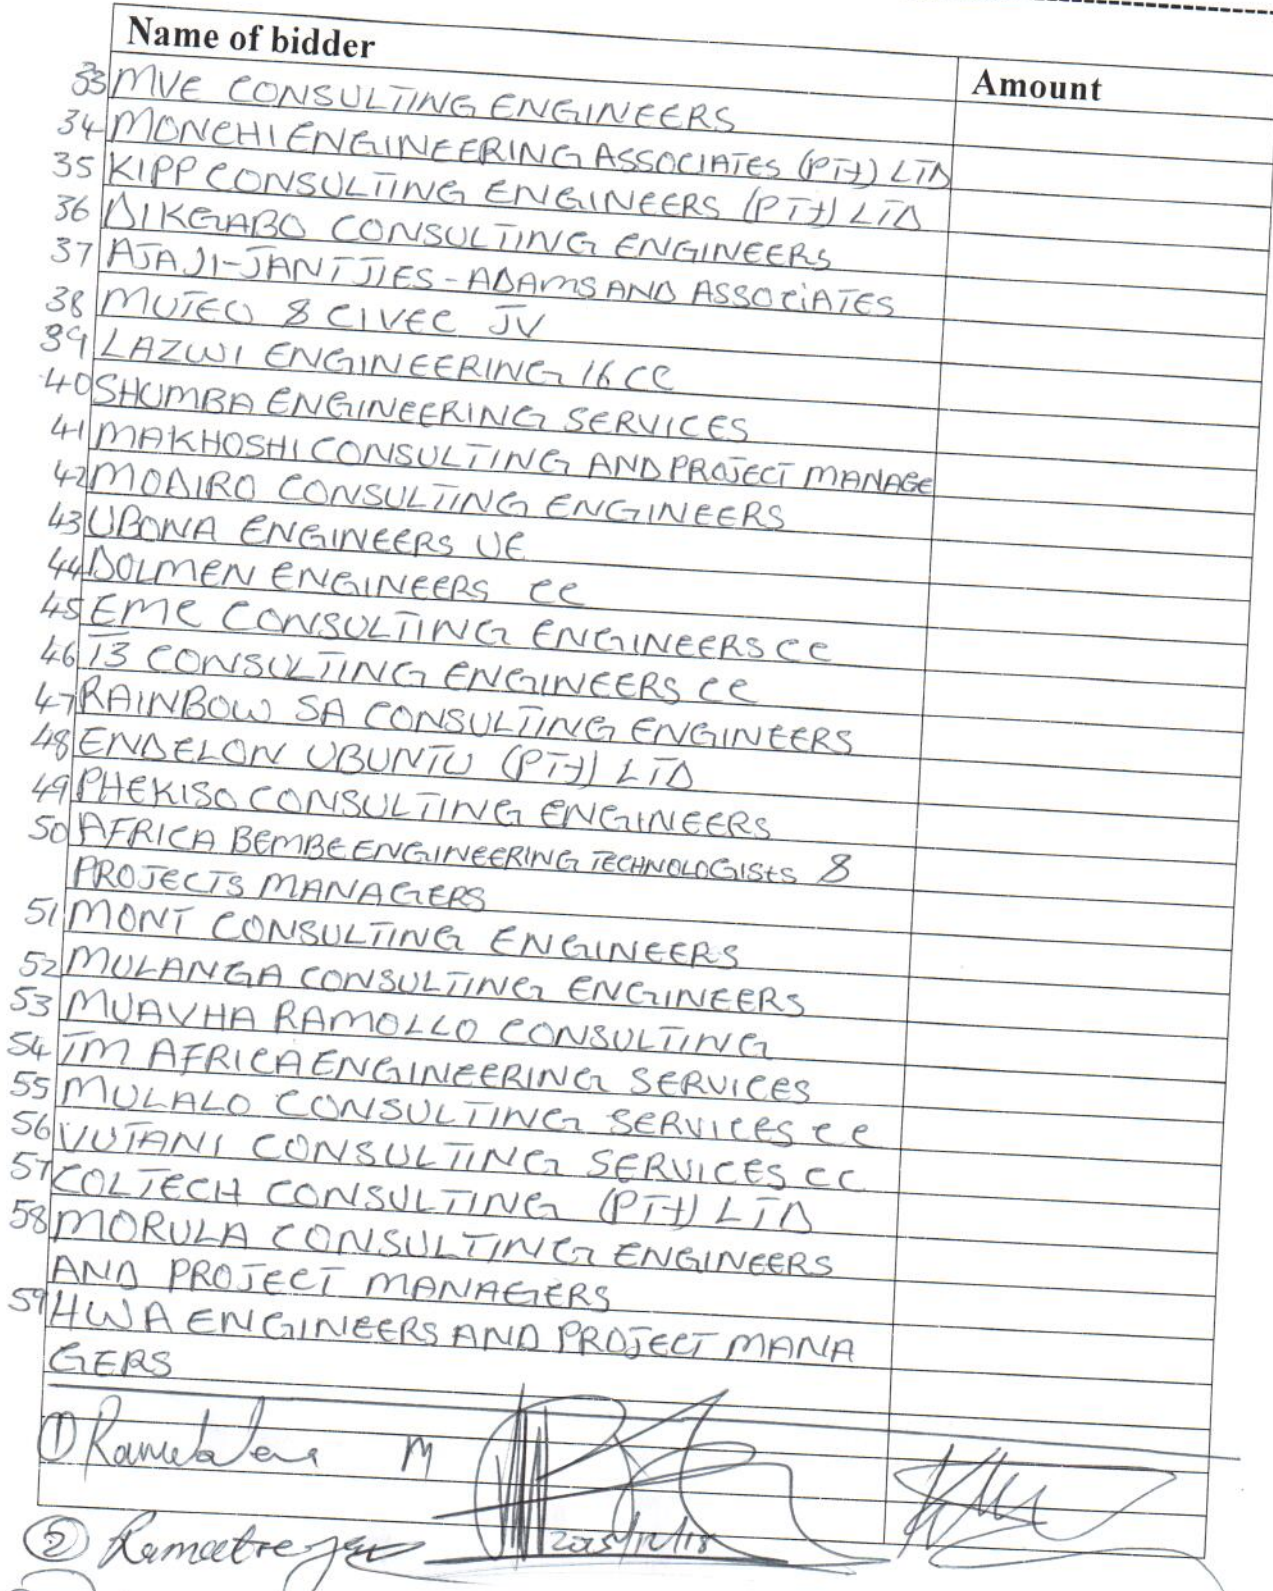 Name of bidder Amount
33 MVE CONSULTING ENGINEERS
34 MONCHI ENGINEERING ASSOCIATES (PTY) LTD
35 KIPP CONSULTING ENGINEERS (PTY) LTD
36 DIKGABO CONSULTING ENGINEERS
37 AJAJI-JANTJIES-ADAMS AND ASSOCIATES
38 MUTEO & CIVEC JV
39 LAZWI ENGINEERING 16 CC
40 SHUMBA ENGINEERING SERVICES
41 MAKHOSHI CONSULTING AND PROJECT MANAGE
42 MODIRO CONSULTING ENGINEERS
43 UBONA ENGINEERS
44 DOLMEN ENGINEERS CC
45 EMC CONSULTING ENGINEERS CC
46 T3 CONSULTING ENGINEERS CC
47 RAINBOW SA CONSULTING ENGINEERS
48 ENDELON UBUNTU (PTY) LTD
49 PHEKISO CONSULTING ENGINEERS
50 AFRICA BEMBE ENGINEERING TECHNOLOGISTS &
PROJECTS MANAGERS
51 MONT CONSULTING ENGINEERS
52 MULANGA CONSULTING ENGINEERS
53 MUAVHA RAMOLLO CONSULTING
54 TM AFRICA ENGINEERING SERVICES
55 MULALO CONSULTING SERVICES CC
56 VUTANI CONSULTING SERVICES CC
57 COLTECH CONSULTING (PTY) LTD
58 MORULA CONSULTING ENGINEERS
AND PROJECT MANAGERS
59 HWA ENGINEERS AND PROJECT MANA
GERS
① M
②